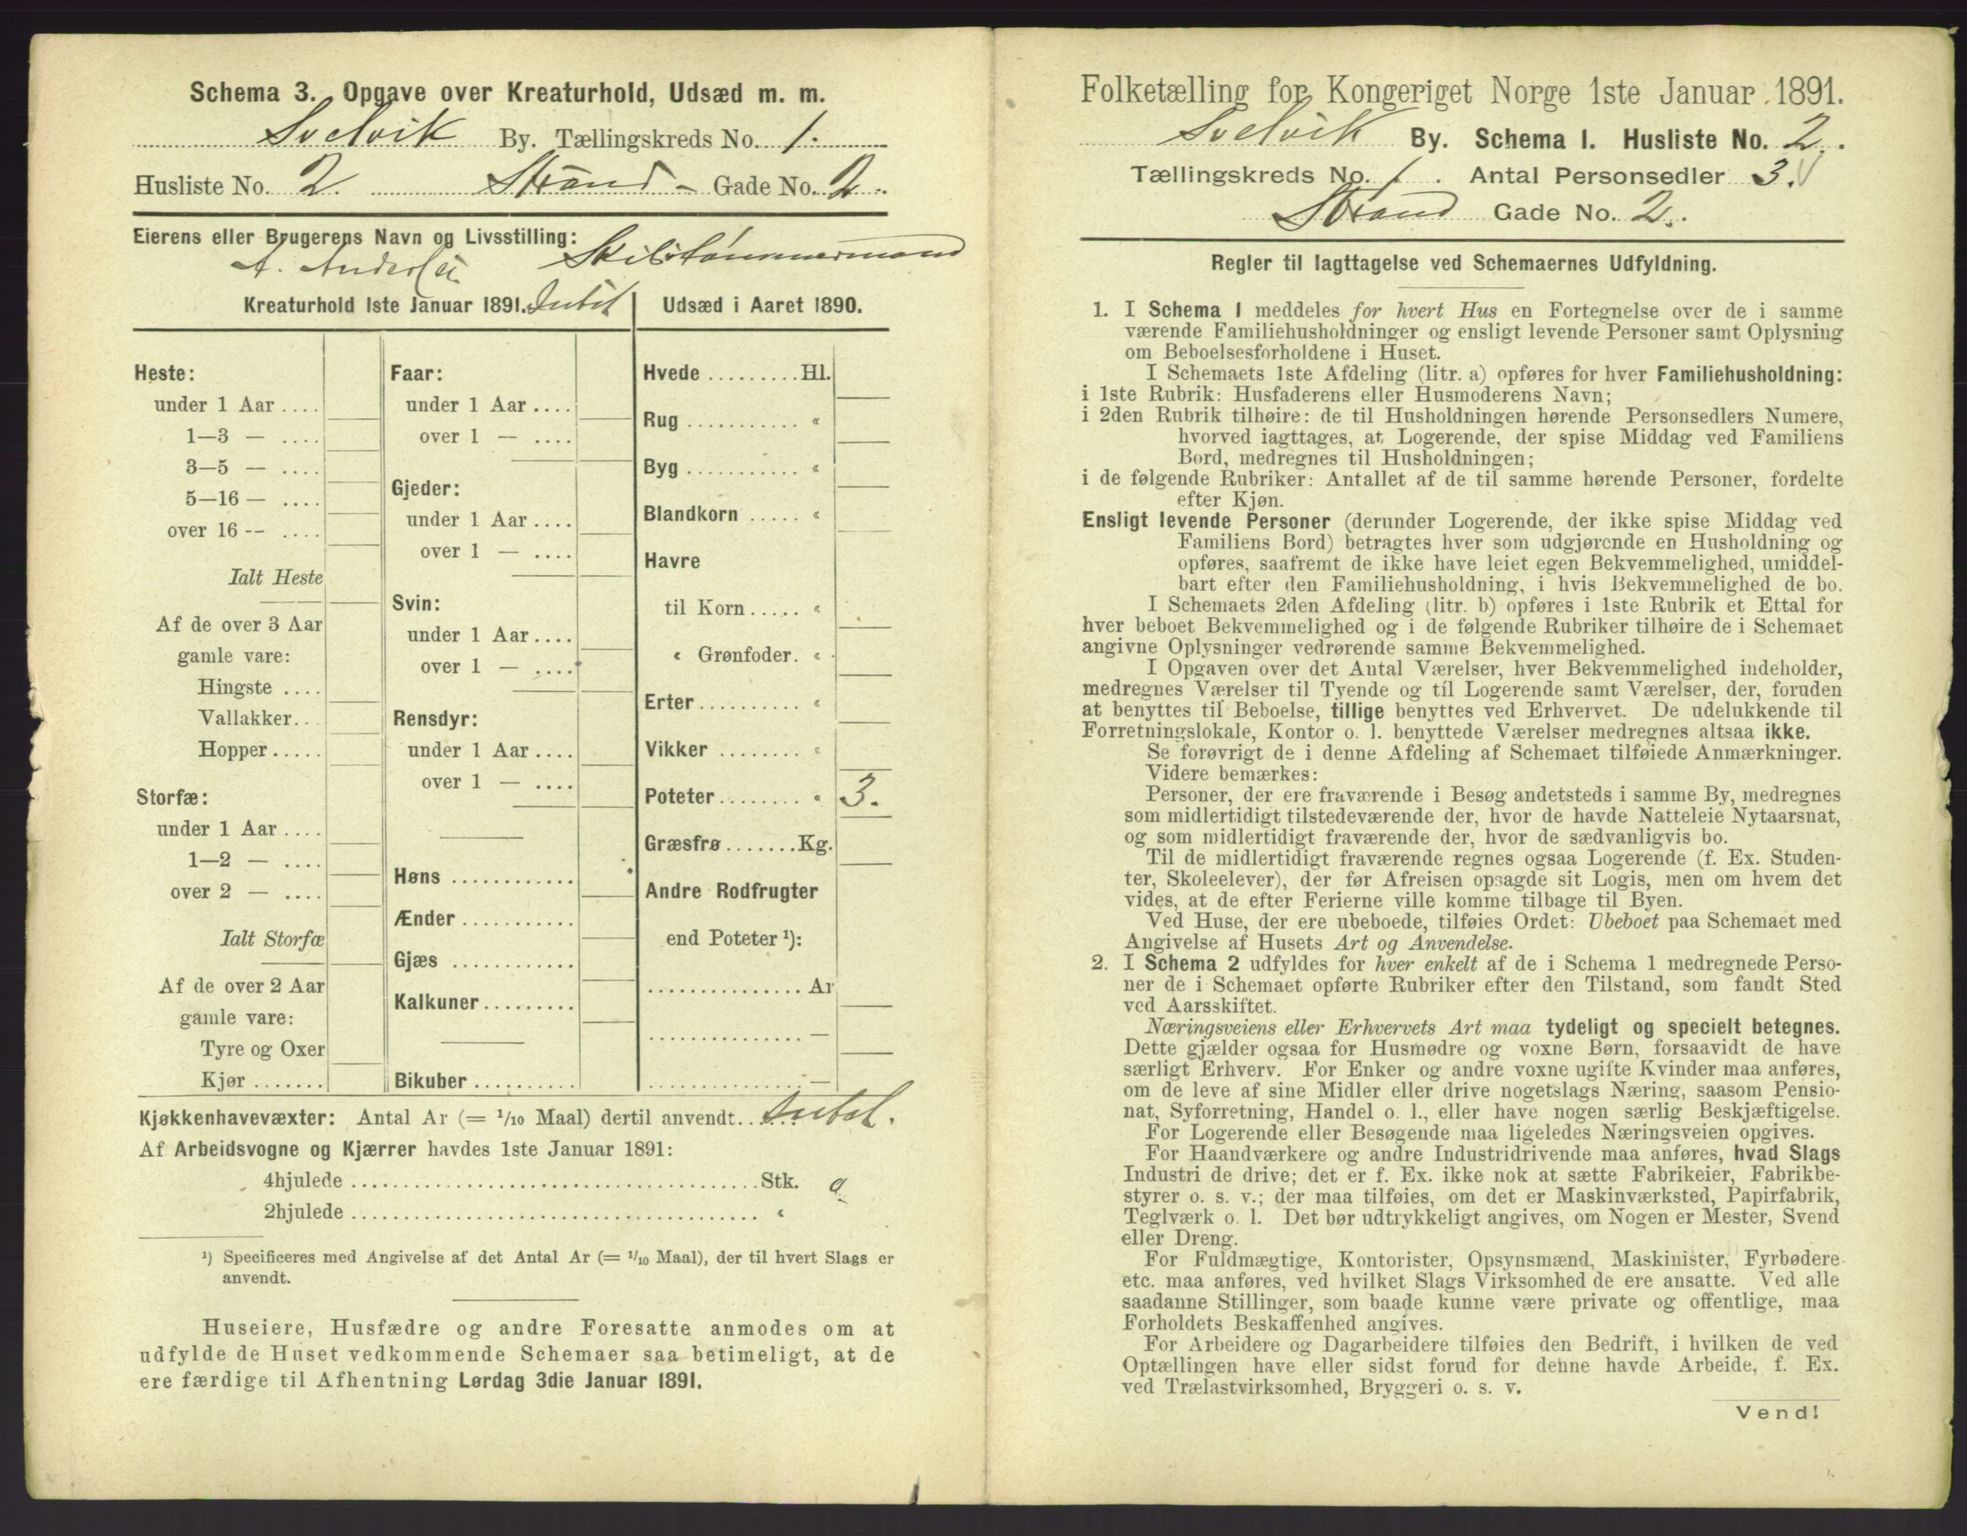 Schema 3. Opgave over Kreaturhold, Udsæd m. m.
Svelvik By. Tællingskreds No. 1.
Husliste No. 2. Strand - Gade No. 2.
Eierens eller Brugerens Navn og Livsstilling:
A. Andersen Skibstømmermand
Kreaturhold 1ste Januar 1891. Intet
Heste:
under 1 Aar ....
1—3 — ....
3—5 — ....
5—16 — ....
over 16 -- ....
Ialt Heste
Af de over 3 Aar
gamle vare:
Hingste ....
Vallakker...
Hopper.....
Storfæ:
under 1 Aar ....
1—2 — ....
over 2 — ....
Ialt Storfæ
Af de over 2 Aar
gamle vare:
Tyre og Oxer
Kjør .......
Faar:
under 1 Aar ....
over 1 — ....
Gjeder:
under 1 Aar ....
over 1 — ....
Svin:
under 1 Aar ....
over 1 — ....
Rensdyr:
under 1 Aar ....
over 1 — ....
Høns ............
Ænder ............
Gjæs ............
Kalkuner .........
Bikuber ..........
Udsæd i Aaret 1890.
Hvede ......... Hl.
Rug ........... «
Byg ........... «
Blandkorn ..... «
Havre
til Korn ..... «
« Grønfoder. «
Erter ......... «
Vikker ........ «
Poteter ........ « 3.
Græsfrø ....... Kg.
Andre Rodfrugter
end Poteter ¹):
............... Ar
............... —
............... —
Kjøkkenhavevæxter: Antal Ar (= 1/10 Maal) dertil anvendt...... Intet.
Af Arbeidsvogne og Kjærrer havdes 1ste Januar 1891:
4hjulede ...................................... Stk. 0
2hjulede ...................................... «
¹) Specificeres med Angivelse af det Antal Ar (= 1/10 Maal), der til hvert Slags er
anvendt.
Huseiere, Husfædre og andre Foresatte anmodes om at
udfylde de Huset vedkommende Schemaer saa betimeligt, at de
ere færdige til Afhentning Lørdag 3die Januar 1891.
Folketælling for Kongeriget Norge 1ste Januar 1891.
Svelvik By. Schema I. Husliste No. 2.
Tællingskreds No. 1. Antal Personsedler 3.
Strand Gade No. 2.
Regler til Iagttagelse ved Schemaernes Udfyldning.
1. I Schema 1 meddeles for hvert Hus en Fortegnelse over de i samme
værende Familiehusholdninger og ensligt levende Personer samt Oplysning
om Beboelsesforholdene i Huset.
I Schemaets 1ste Afdeling (litr. a) opføres for hver Familiehusholdning:
i 1ste Rubrik: Husfaderens eller Husmoderens Navn;
i 2den Rubrik tilhøire: de til Husholdningen hørende Personsedlers Numere,
hvorved iagttages, at Logerende, der spise Middag ved Familiens
Bord, medregnes til Husholdningen;
i de følgende Rubriker: Antallet af de til samme hørende Personer, fordelte
efter Kjøn.
Ensligt levende Personer (derunder Logerende, der ikke spise Middag ved
Familiens Bord) betragtes hver som udgjørende en Husholdning og
opføres, saafremt de ikke have leiet egen Bekvemmelighed, umiddel-
bart efter den Familiehusholdning, i hvis Bekvemmelighed de bo.
I Schemaets 2den Afdeling (litr. b) opføres i 1ste Rubrik et Ettal for
hver beboet Bekvemmelighed og i de følgende Rubriker tilhøire de i Schemaet
angivne Oplysninger vedrørende samme Bekvemmelighed.
I Opgaven over det Antal Værelser, hver Bekvemmelighed indeholder,
medregnes Værelser til Tyende og til Logerende samt Værelser, der, foruden
at benyttes til Beboelse, tillige benyttes ved Erhvervet. De udelukkende til
Forretningslokale, Kontor o. l. benyttede Værelser medregnes altsaa ikke.
Se forøvrigt de i denne Afdeling af Schemaet tilføiede Anmærkninger.
Videre bemærkes:
Personer, der ere fraværende i Besøg andetsteds i samme By, medregnes
som midlertidigt tilstedeværende der, hvor de havde Natteleie Nytaarsnat,
og som midlertidigt fraværende der, hvor de sædvanligvis bo.
Til de midlertidigt fraværende regnes ogsaa Logerende (f. Ex. Studen-
ter, Skoleelever), der før Afreisen opsagde sit Logis, men om hvem det
vides, at de efter Ferierne ville komme tilbage til Byen.
Ved Huse, der ere ubeboede, tilføies Ordet: Ubeboet paa Schemaet med
Angivelse af Husets Art og Anvendelse.
2. I Schema 2 udfyldes for hver enkelt af de i Schema 1 medregnede Perso-
ner de i Schemaet opførte Rubriker efter den Tilstand, som fandt Sted
ved Aarsskiftet.
Næringsveiens eller Erhvervets Art maa tydeligt og specielt betegnes.
Dette gjælder ogsaa for Husmødre og voxne Børn, forsaavidt de have
særligt Erhverv. For Enker og andre voxne ugifte Kvinder maa anføres,
om de leve af sine Midler eller drive nogetslags Næring, saasom Pensio-
nat, Syforretning, Handel o. l., eller have nogen særlig Beskjæftigelse.
For Logerende eller Besøgende maa ligeledes Næringsveien opgives.
For Haandværkere og andre Industridrivende maa anføres, hvad Slags
Industri de drive; det er f. Ex. ikke nok at sætte Fabrikeier, Fabrikbe-
styrer o. s. v.; der maa tilføies, om det er Maskinværksted, Papirfabrik,
Teglværk o. l. Det bør udtrykkeligt angives, om Nogen er Mester, Svend
eller Dreng.
For Fuldmægtige, Kontorister, Opsynsmænd, Maskinister, Fyrbødere
etc. maa anføres, ved hvilket Slags Virksomhed de ere ansatte. Ved alle
saadanne Stillinger, som baade kunne være private og offentlige, maa
Forholdets Beskaffenhed angives.
For Arbeidere og Dagarbeidere tilføies den Bedrift, i hvilken de ved
Optællingen have eller sidst forud for denne havde Arbeide, f. Ex.
ved Trælastvirksomhed, Bryggeri o. s. v.
Vend!